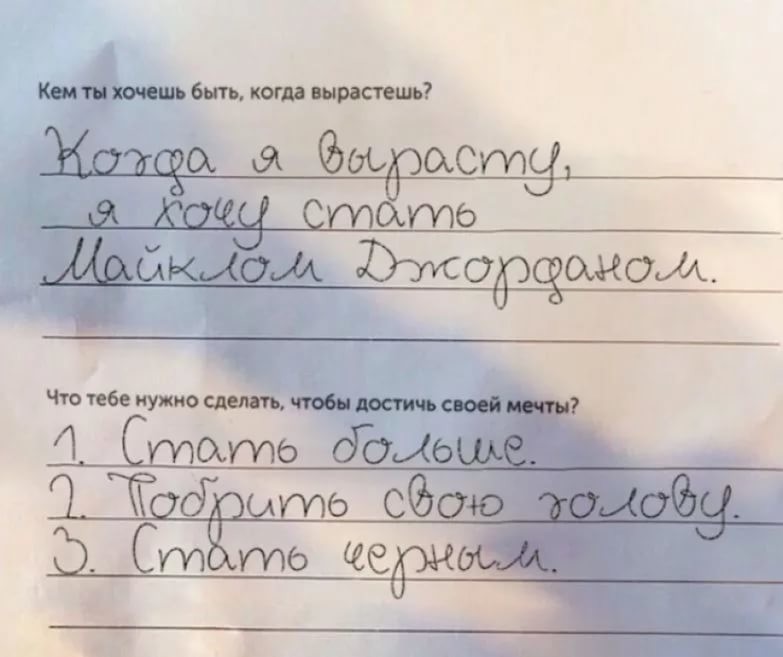 Кем ты хочешь быть, когда вырастешь?
Когда я вырасту,
я хочу стать
Майклом Джорданом.
Что тебе нужно сделать, чтобы достичь своей мечты?
1. Стать больше.
2. Побрить свою голову.
3. Стать черным.